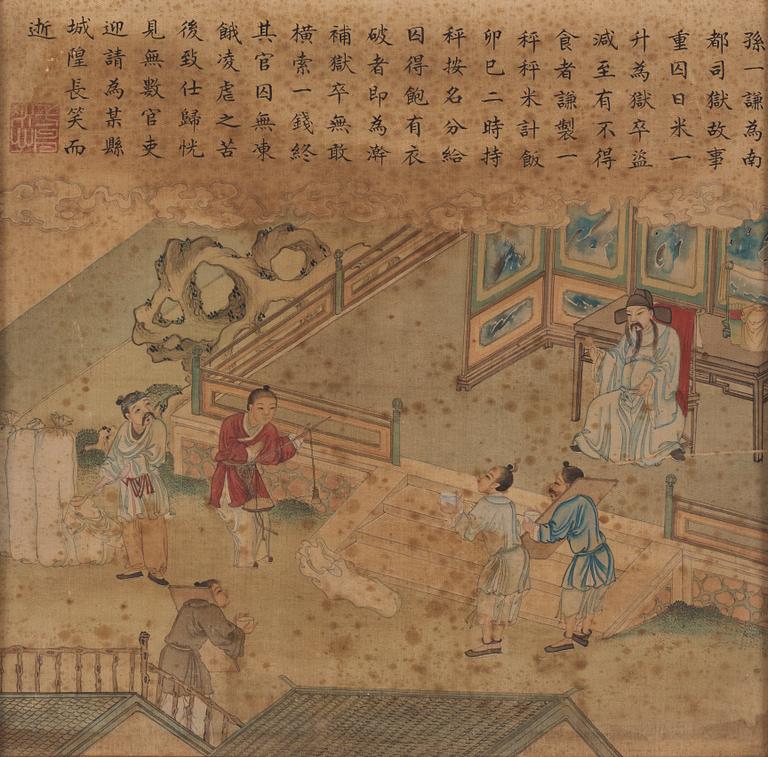 孫一謙為南
都司獄故事
重囚日米一
升為獄卒盜
減至有不得
食者謙製一
秤秤米計飯
卯巳二時持
秤按名分給
囚得飽有衣
破者即為澣
補獄卒無敢
橫索一錢終
其官囚無凍
餓凌虐之苦
後致仕歸恍
見無數官吏
迎請為某縣
城隍長笑而
逝